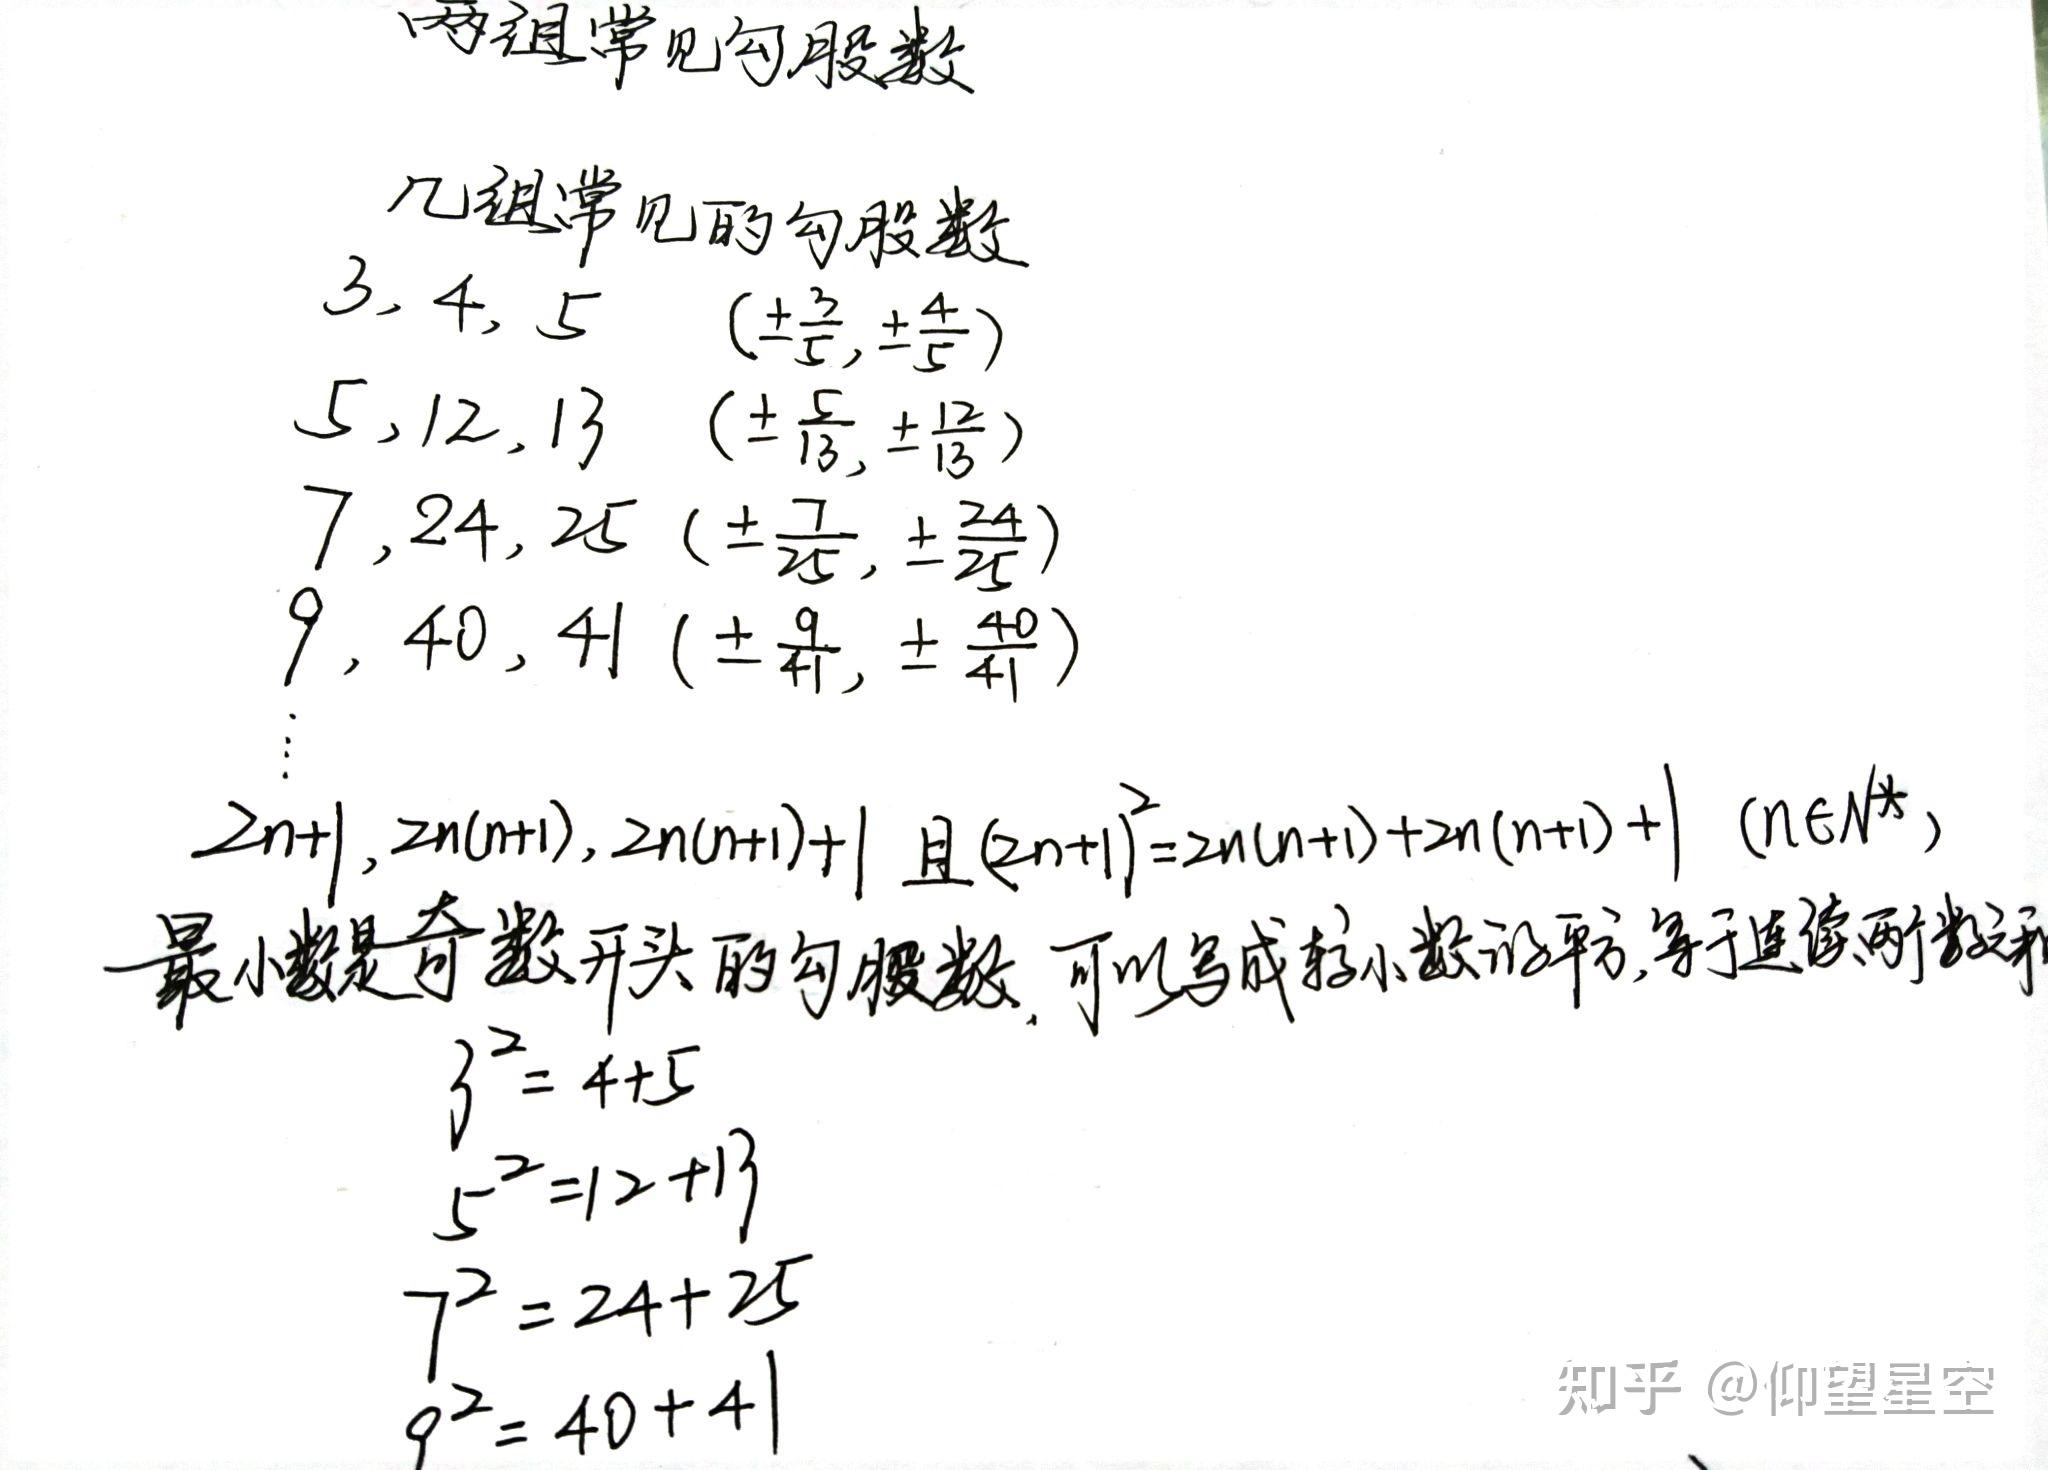 两组常见勾股数
几组常见的勾股数
3, 4, 5 (±3/5, ±4/5)
5, 12, 13 (±5/13, ±12/13)
7, 24, 25 (±7/25, ±24/25)
9, 40, 41 (±9/41, ±40/41)
⋮
2n+1, 2n(n+1), 2n(n+1)+1 且(2n+1)²=2n(n+1)+2n(n+1)+1 (n∈N*,
最小数是奇数开头的勾股数,可以写成较小数的平方,等于连续两个数之和
3²=4+5
5²=12+13
7²=24+25
9²=40+41
知乎 @仰望星空